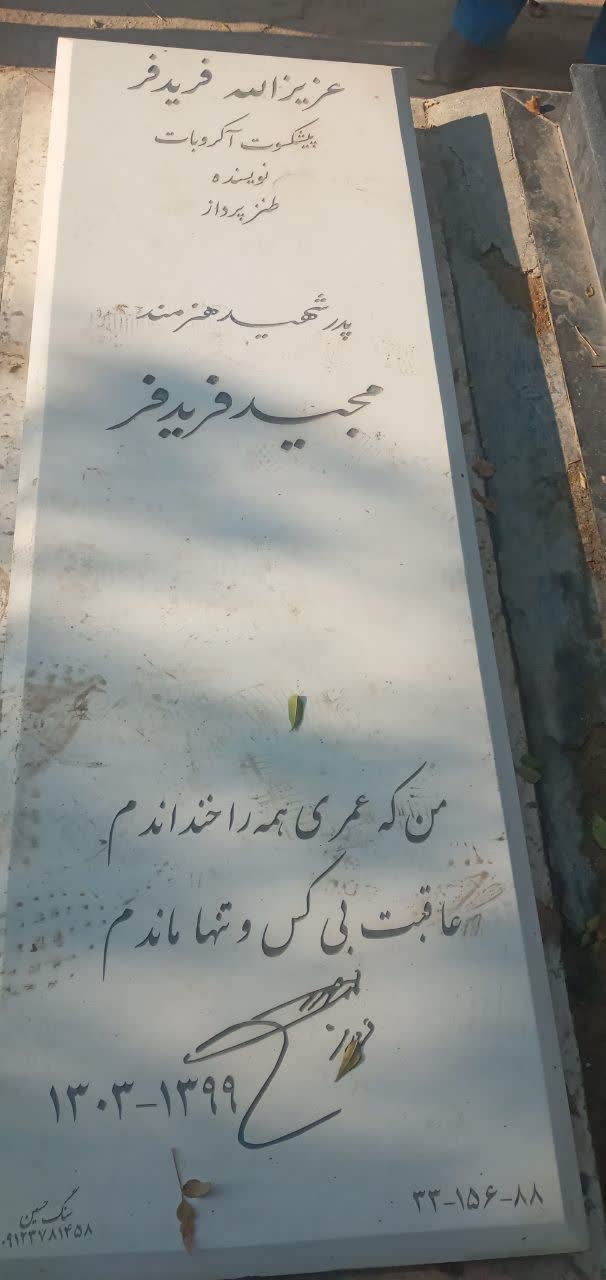 عزیزالله فریدفر
پیشکسوت آکروبات
نویسنده
طنزپرداز
پدر شهید هنرمند
مجید فریدفر
من که عمری همه را خنداندم
عاقبت بی کس و تنها ماندم
۱۳۰۳-۱۳۹۹
۳۳-۱۵۶-۸۸
سنگ حسین
۰۹۱۲۳۷۸۱۴۵۸